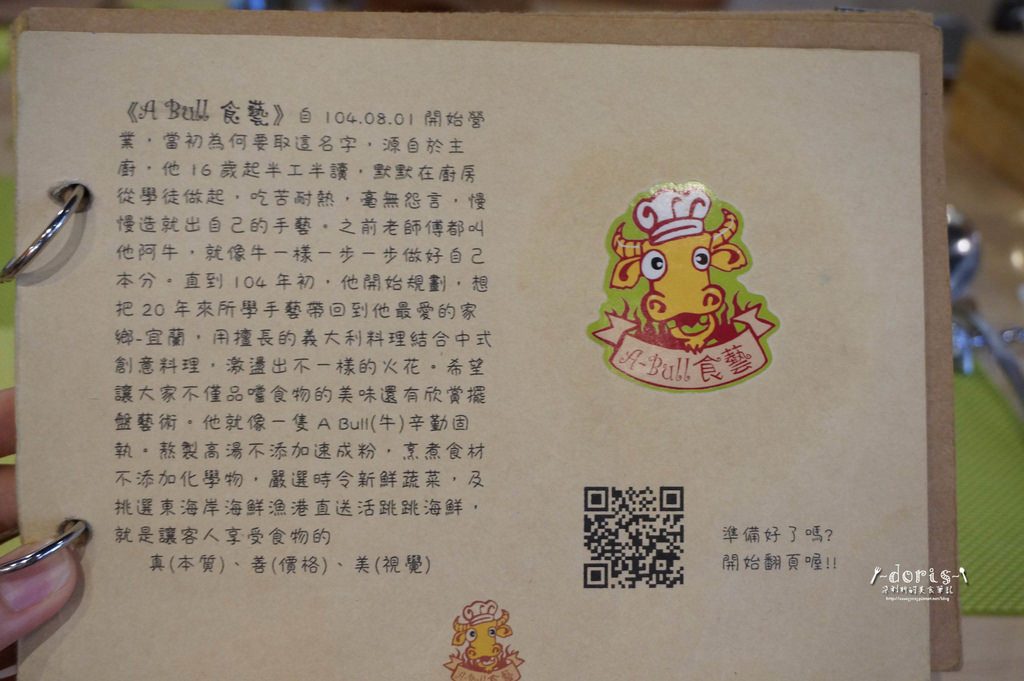 《A Bull 食藝》自 104.08.01 開始營
業，當初為何要取這名字，源自於主
廚，他 16 歲起半工半讀，默默在廚房
從學徒做起，吃苦耐熱，毫無怨言，慢
慢造就出自己的手藝。之前老師傅都叫
他阿牛，就像牛一樣一步一步做好自己
本分。直到 104 年初，他開始規劃，想
把 20 年來所學手藝帶回到他最愛的家
鄉-宜蘭，用擅長的義大利料理結合中式
創意料理，激盪出不一樣的火花。希望
讓大家不僅品嚐食物的美味還有欣賞擺
盤藝術。他就像一隻 A Bull(牛)辛勤固
執。熬製高湯不添加速成粉，烹煮食材
不添加化學物，嚴選時令新鮮蔬菜，及
挑選東海岸海鮮漁港直送活跳跳海鮮，
就是讓客人享受食物的
真(本質)、善(價格)、美(視覺)
A-Bull 食藝
準備好了嗎?
開始翻頁喔!!
-doris-